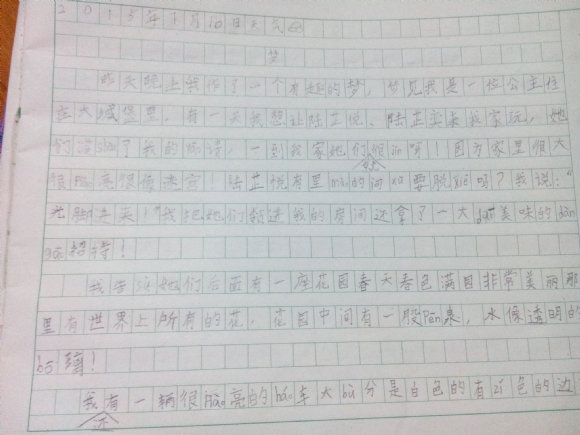 2015年1月10日天气
梦
昨天晚上我做了一个有趣的梦，梦见我是一位公主住
在大城堡里，有一天我想让陆芷悦、陆芷奕来我家玩，她
们一到我家她们很呀！因为家里很大
很亮很像迷宫！陆芷悦有里的说要脱xié吗？我说：“
光脚走来！”我把她们请进我的房间还拿了一大美味的
招待！
我告她们后面有一座花园春天春色满园非常美丽那
里有世界上所有的花，花园中间有一股pēn泉，水像透明的
bō璃！
我有一辆很亮的车大bù分是白色的有zǐ色的边
还